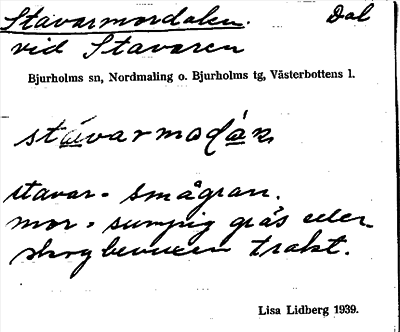 Stavarmordalen. Dal
vid Stavaren
Bjurholms sn, Nordmaling o. Bjurholms tg, Västerbottens l.
stavar = smågran.
mor = sumpig gräs eller
skogbevuxen trakt.
Lisa Lidberg 1939.